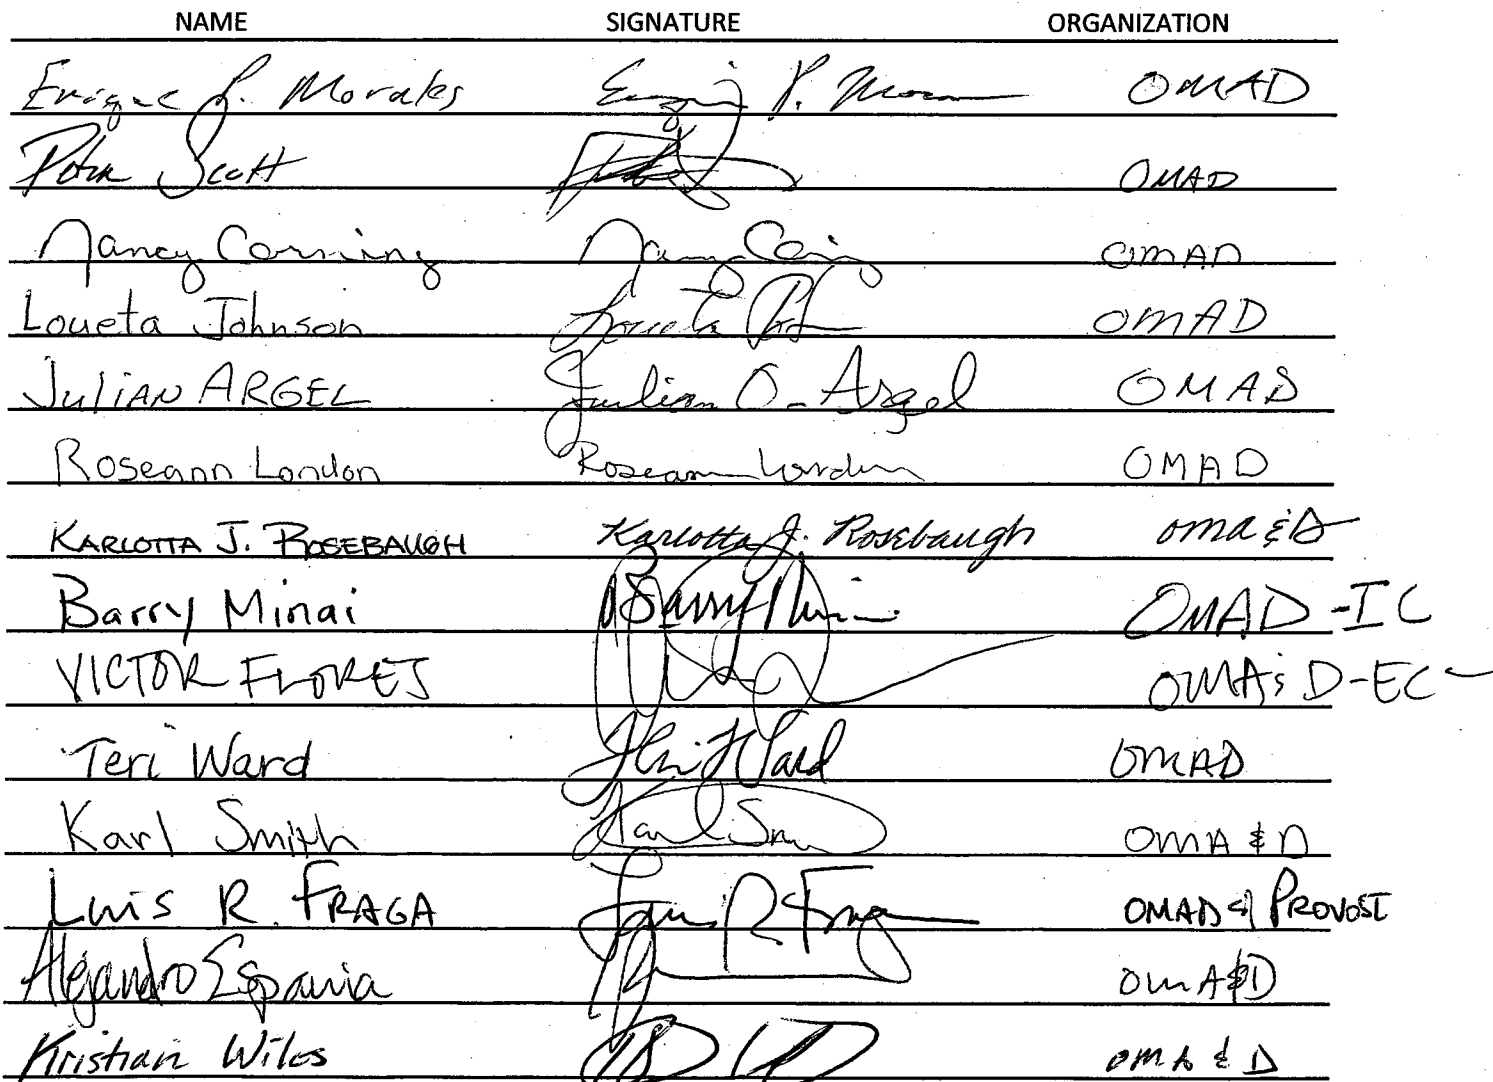 NAME SIGNATURE ORGANIZATION
Enrique P. Morales Enrique P. Mora OMAD
Scott OMAD
Nancy Corning Nancy Corning OMAD
Loueta Johnson Loueta OMAD
JULIAN ARGEL Julian O. Argel OMAD
Roseann London Roseann London OMAD
KARLOTTA J. ROSEBAUGH Karlotta J. Rosebaugh OMA & D
Barry Minai Barry Minai OMAD-IC
VICTOR FLORES OMA& D-EC
Teri Ward Teri Ward OMAD
Karl Smith Karl Smith OMA & D
Luis R. FRAGA Luis R. Fraga OMAD & PROVOST
Alejandro Espania OMA&D
Kristian Wiles OMA & D